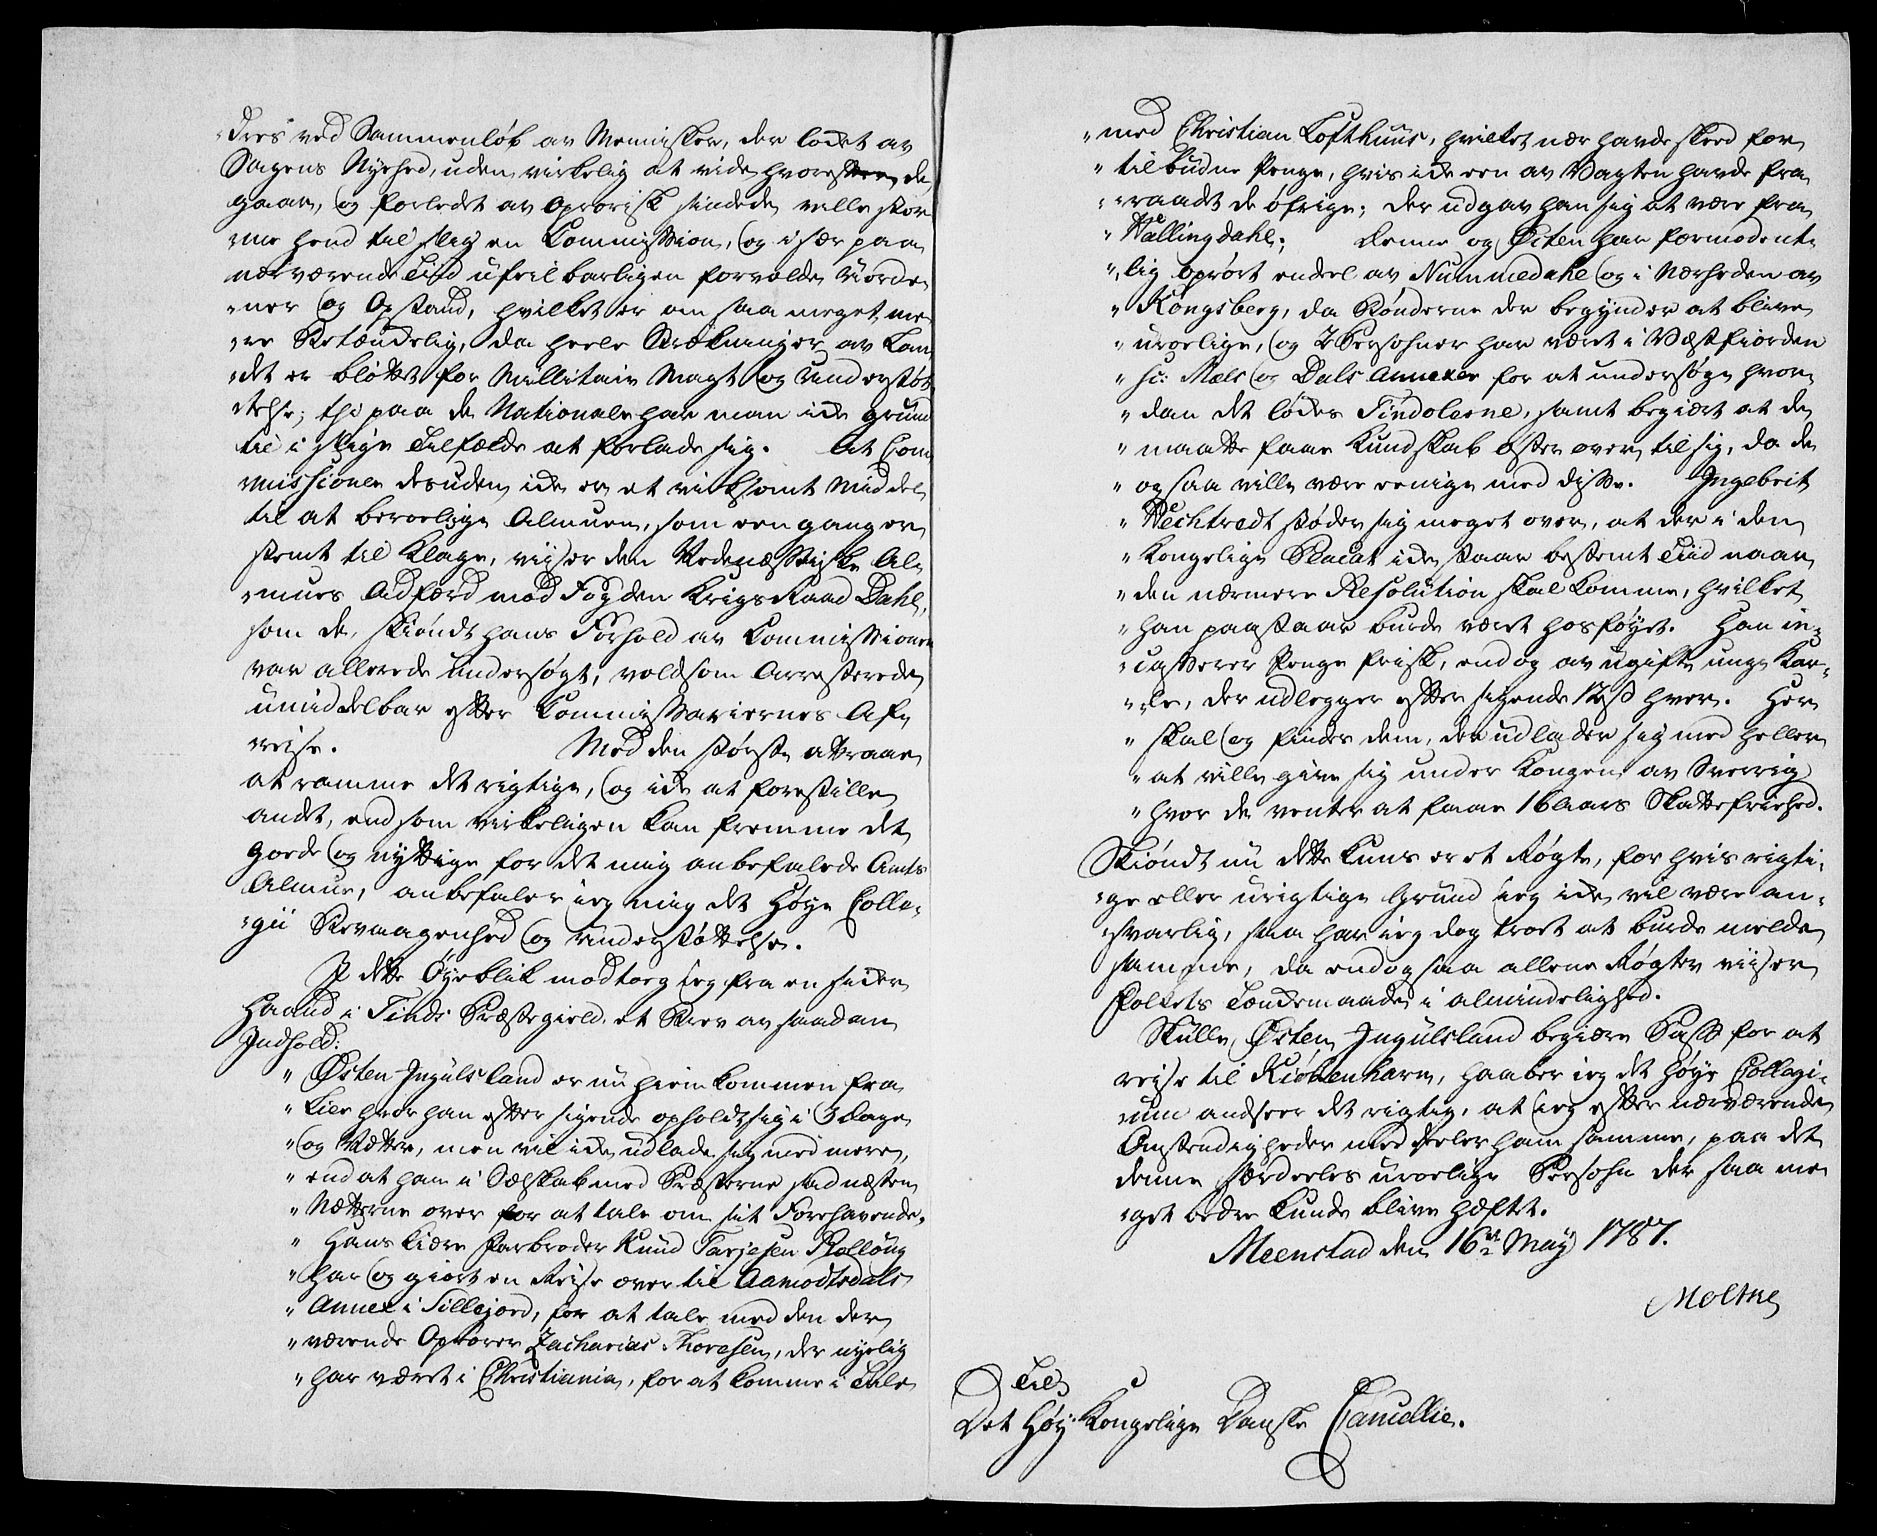 dres ved Sammenløb av Mennisker, der lodet av
Sagens Nyehed, uden virkelig at vide hvorefter de
gaar, og forledt av oprørisk sindede ville stør
me hend til slig en Commission, og i sær paa
nærværende Tiid ufeilbarligen forvolde Uorde
ner og Opstand, hvilket er om saa meget me
re Betændelig, da heele Strækninger av Lan
det er bløttet for Millitair Magt og Understøt
telse; thi paa de Nationale har man icke grund
til i slige Tilfælde at forlade sig. At Com
missioner desuden icke er et virksomt Middel
til at beroelige Almuen, som een gang er
stemt til Klage, viiser den Nedenæssiske Al
mues Adfærd mod Fogden Krigs Raad Dahl,
som de, skiøndt hans Forhold av Commissionen
var allerede undersøgt, voldsom arresterede
umiddelbar efter Commissariernes Af
reise. Med den største Attraae
at ramme det rigtige, og icke at forestille
andet, end som virkeligen kan fremme det
goede og nyttige for det mig anbefalede Amts
Almue, anbefaler ieg mig det Høye Colle
gii Bevaagenhed og Understøttelse.
I dette Øyeblik modtog ieg fra en sicker
Haand i Tinds Præstegield et Brev av saadan
Indhold:
" Østen Ingulsland er nu hiem kommen fra
" Lier hvor han efter sigende opholdt sig i 3 Dage
" og Nætter, men vil icke udlade sig med mere,
" end at han i Selskab med Præsterne sad næsten
" Nætterne over for at tale om sit Forehavende.
" Hans kiære Farbroder Knud Tarjesen Rollöug
" har og giort en Reise over til Aamodtsdals
" Annex i Sillejord, for at tale med den der
" værende Oprører Zacharias Thoresen, der nyelig
" har været i Christiania, for at komme i Tale
" med Christian Lofthuus, hvilket nær havde skeed for
" tilbudne Penge, hvis icke een av Vagten havde fra
" raadt de øfrige; der udgav han sig at være fra
" Hallingdahl; Denne og Østen har formodent
" lig oprørt endeel av Nummedahl og i Nærheden av
" Kongsberg, da Bønderne der begynder at blive
" uroelige, og 2 Persohner har været i Vestfiorden
" sc: Mæls og Dals Annexer for at undersøge hvor
" dan det lodes Tindolerne, samt begiært at de
" maatte faae Kundskab øster over til sig, da de
" ogsaa ville være eenige med disse. Ingebret
" Hechtvedt støder sig meget over, at der i den
" Kongelige Placat icke staar bestemt Tiid naar
" den nærmere Resolution skal komme, hvilket
" han paastaar burde været hosføyet. Han in
" casserer Penge frisk, endog av ugifte unge Kar
" le, der udlegger efter sigende 12 ß hver. Her
" skal og findes dem, der udlader sig med heller
" at ville give sig under Kongen av Sverrig
" hvor de venter at faae 16 aars Skattefriehed.
Skiøndt nu dette kuns er et Røgte, for hvis rigti
ge eller urigtige Grund ieg icke vil være an
svarlig, saa har ieg dog troet at burde melde
samme, da endogsaa allene Røgter viiser
Folkets Tænkemaade i almindelighed.
Skulle Østen Ingulsland begiære Pass for at
reise til Kiøbenhavn, haaber ieg det høye Collegi
um andseer det rigtig, at ieg efter nærværende
Omstendigheder meddeeler ham samme, paa det
denne særdeeles uroelige Persohn der saa me
get bedre kunde blive hæftet.
Meenstad den 16de May 1787.
Moltke
Til
Det Høy Kongelige Danske Cancellie.